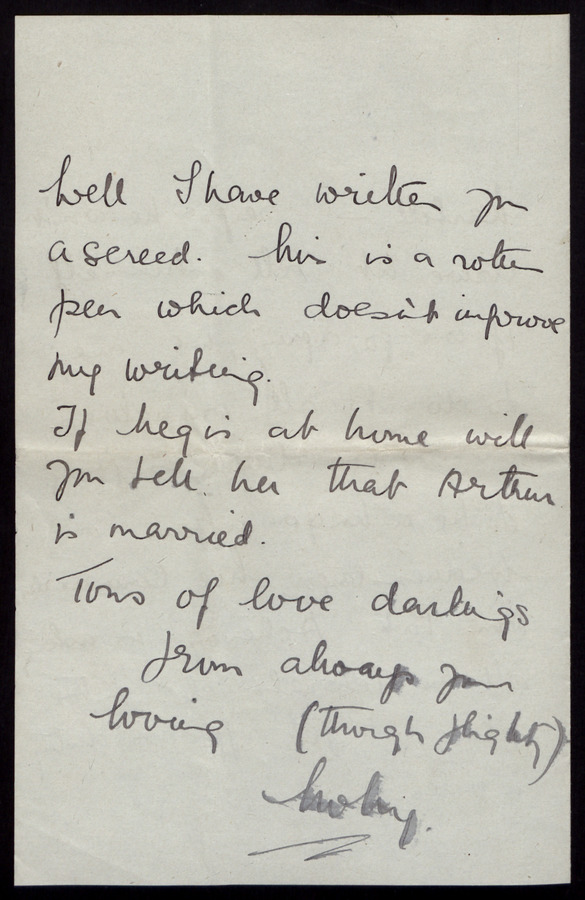 Well I have written you
a screed. This is a rotten
pen which doesn't improve
my writing.
If Meg is at home will
you tell her that Arthur
is married.
Tons of love darlings
from always your
loving (though flighty)